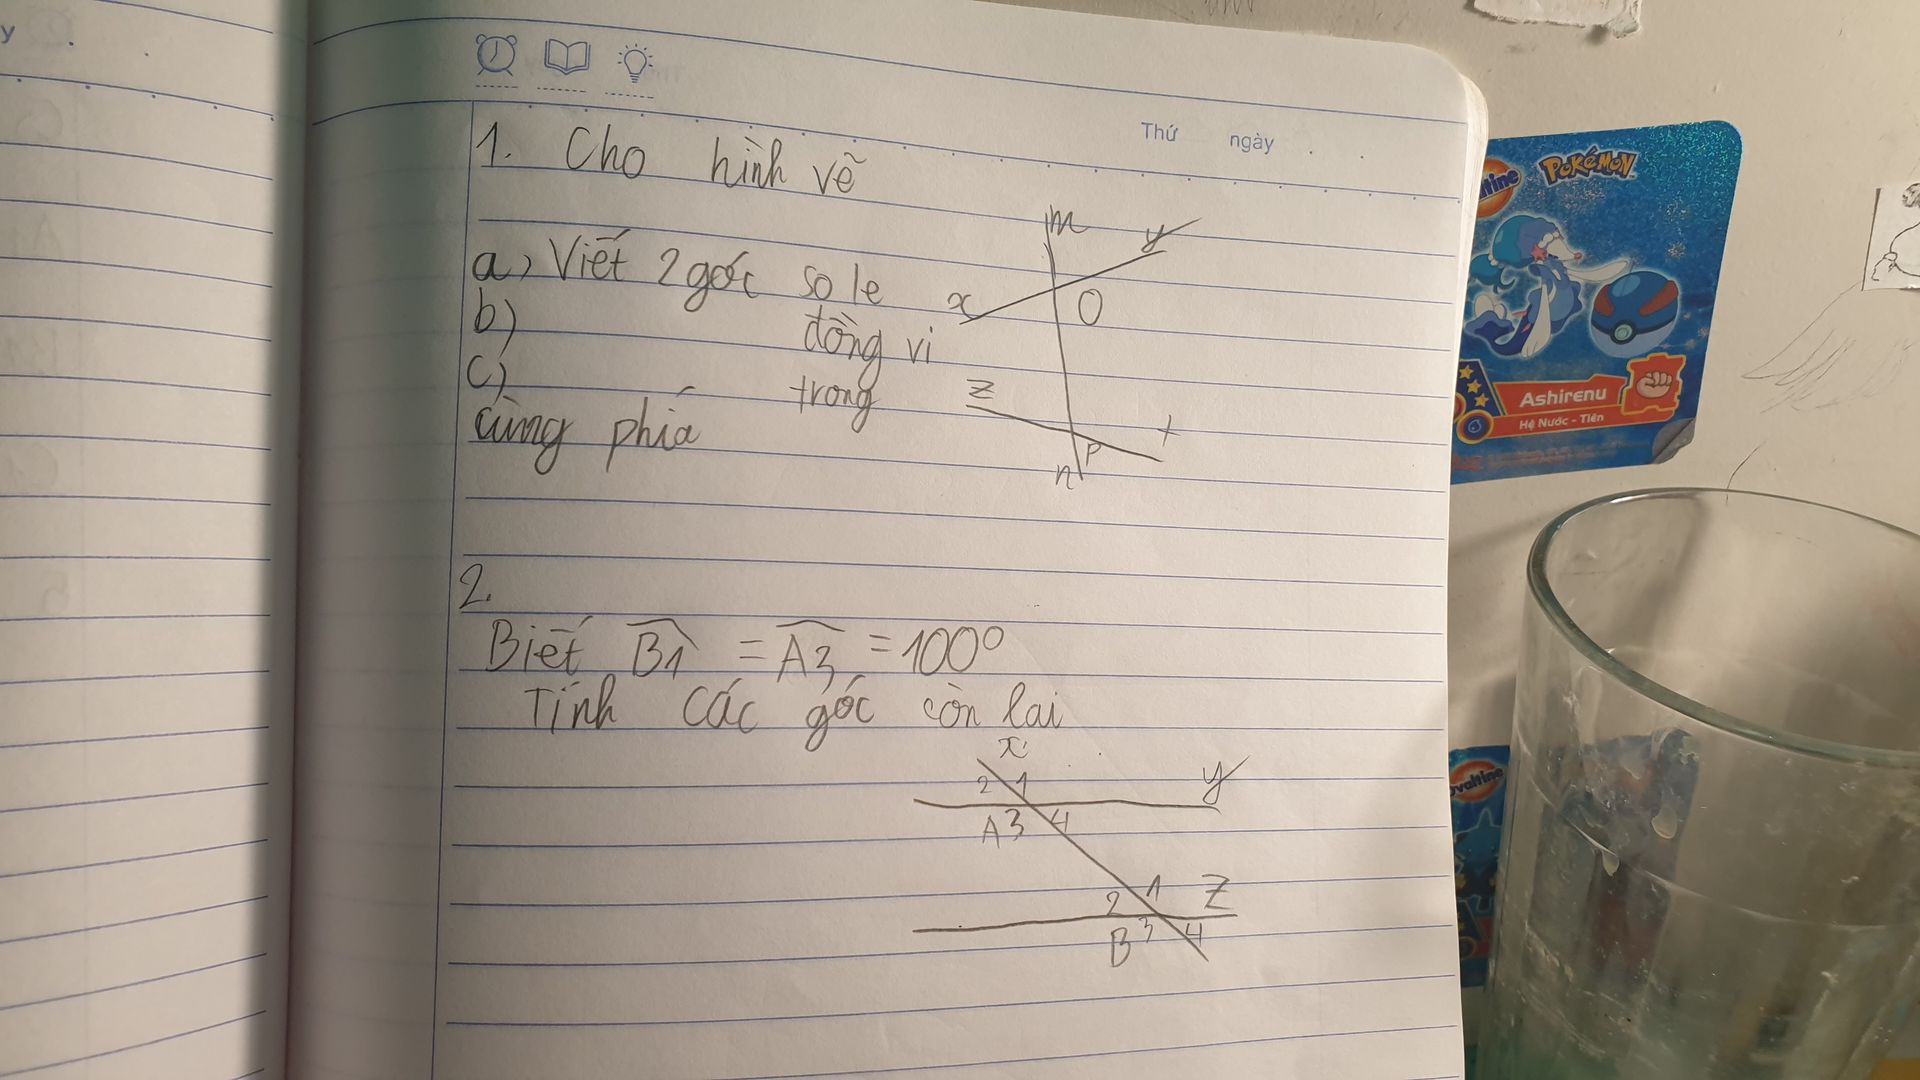 y
Thứ ngày
1. Cho hình vẽ
a) Viết 2 góc so le
b) đồng vi
c) trong
cùng phía
m
y
x
O
z
t
p
n
2.
Biết B1 = A3 = 100°
Tính các góc còn lai
x
2 1
y
A 3 4
2 1
z
B 3 4
POKÉMON
Ashirenu
Hệ Nước - Tiên
ovaltine